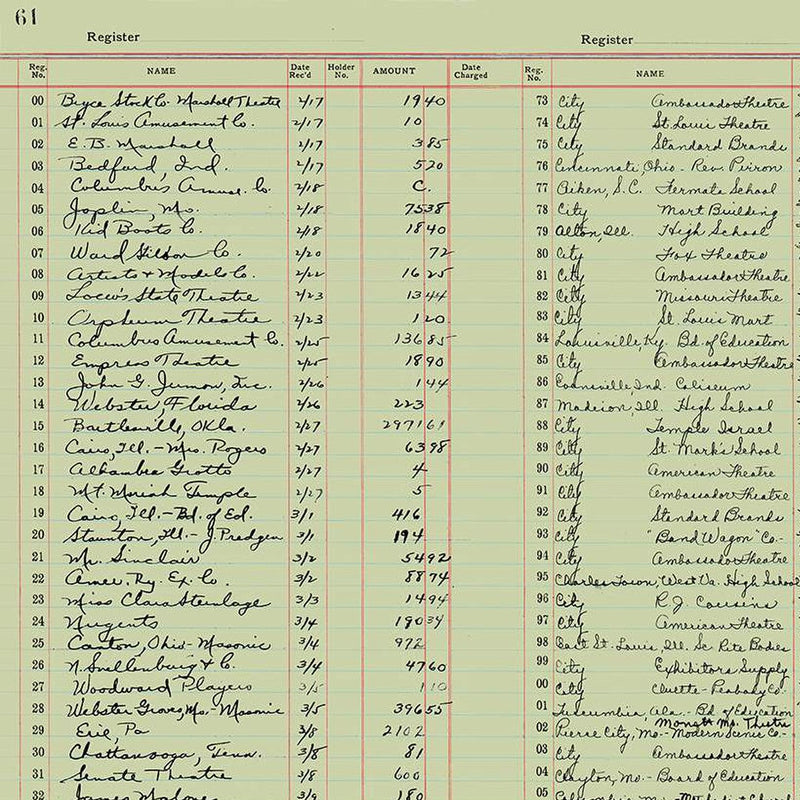 61
Register Register
Reg. No. NAME Date Rec'd Holder No. AMOUNT Date Charged Reg. No. NAME
00 Bryce Stock Co. Marshall Theatre 2/17 19 40
01 St. Louis Amusement Co. 2/17 10
02 E.B. Marshall 2/17 3 85
03 Bedford, Ind. 2/17 5 20
04 Columbus Amuse. Co. 2/18 C.
05 Joplin, Mo. 2/18 75 38
06 Kid Boots Co. 2/18 18 40
07 Ward Co. 2/20 72
08 Artists & Models Co. 2/22 16 25
09 Loew's State Theatre 2/23 13 44
10 Orpheum Theatre 2/23 1 20
11 Columbus Amusement Co. 2/25 136 85
12 Empress Theatre 2/25 18 90
13 John G. Jermon, Inc. 2/26 1 44
14 Webster, Florida 2/26 223
15 Bartlesville, Okla. 2/27 2971 61
16 Cairo, Ill. - Mrs. Rogers 2/27 63 98
17 Alhambra Grotto 2/27 4
18 Mt. Moriah Temple 2/27 5
19 Cairo, Ill. - Bd. of Ed. 3/1 416
20 Staunton, Ill. - J. 3/1 194
21 Mr. Sinclair 3/2 54 92
22 Amer. Ry. Ex. Co. 3/2 88 74
23 Miss Clara Steinlage 3/3 14 94
24 Nugents 3/4 190 34
25 Canton, Ohio - Masonic 3/4 972
26 N. Snellenburg & Co. 3/4 47 60
27 Woodward Players 3/5 1 10
28 Webster Groves, Mo. - Masonic 3/5 396 55
29 Erie, Pa 3/8 2102
30 Chattanooga, Tenn. 3/8 81
31 Senate Theatre 3/8 600
32 James 3/9 180
73 City Ambassador Theatre
74 City St. Louis Theatre
75 City Standard Brands
76 Cincinnati, Ohio - Rev.
77 Aiken, S.C. Fermata School
78 City Mart Building
79 Alton, Ill. High School
80 City Fox Theatre
81 City Ambassador Theatre
82 City Missouri Theatre
83 City St. Louis Mart
84 Louisville, Ky. Bd. of Education
85 City Ambassador Theatre
86 Evansville, Ind. Coliseum
87 Madison, Ill. High School
88 City Temple Israel
89 City St. Mark's School
90 City American Theatre
91 City Ambassador Theatre
92 City Standard Brands
93 City "Band Wagon" Co.-
94 City Ambassador Theatre
95 Charles Town, West Va. High School
96 City R.J. Cousins
97 City American Theatre
98 East St. Louis, Ill. Sc. Rite Bodies
99 City Exhibitors Supply
00 City Cluett-Peabody Co.
01 Tuscumbia, Ala. - Bd. of Education
02 Pierce City, Mo. - Modern Scenic Co.- Monett Mo. Theatre
03 City Ambassador Theatre
04 Clayton, Mo. - Board of Education
05 Columbia, Mo. Church